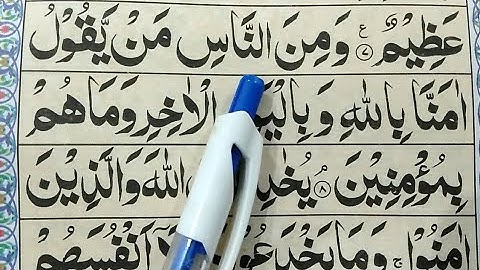 عَظِيْمٌ ﴿۷﴾ ع وَمِنَ النَّاسِ مَنْ يَّقُوْلُ
اٰمَنَّا بِاللّٰهِ الْاٰخِرِ وَمَا هُمْ
بِمُؤْمِنِيْنَ ﴿۸﴾ۘ اللّٰهَ وَالَّذِيْنَ
اٰمَنُوْا ۚ وَمَا اَنْفُسَهُمْ